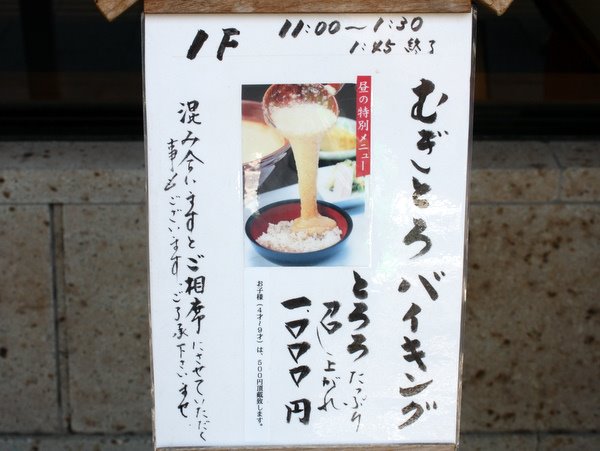 1F
11:00〜1:30
1:45 終了
むぎとろバイキング
昼の特別メニュー
とろろたっぷり
召し上がれ
一〇〇〇円
お子様(4才〜9才)は、500円頂戴致します。
混み合いますとご相席にさせていただく
事もございます。ご了承下さいませ